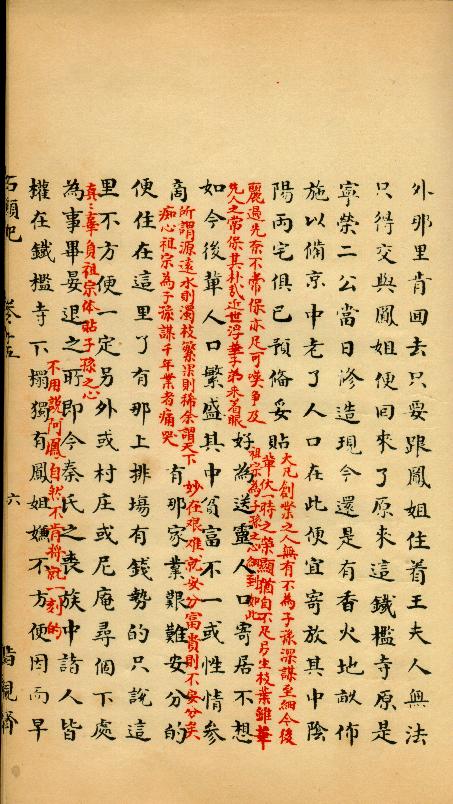 外那里肯回去只要跟鳳姐住着王夫人無法
只得交與鳳姐便回來了原來這鐵檻寺原是
寧榮二公當日修造現今還是有香火地畝佈
施以備京中老了人口在此便宜寄放其中陰
陽兩宅俱已預備妥貼
大凡創業之人無有不為子孫深謀至細今後
輩仗一時之榮顯猶自不足另生枝葉雖華
麗過先奈不常保亦足可嘆爭及
先人之常保其朴哉近世浮華子弟來着眼
好為送靈人口寄居不想
祖宗為子孫之心細到如此
如今後輩人口繁盛其中貧富不一或性情參
商
所謂源遠水則濁枝繁果則稀余謂天下
痴心祖宗為子孫謀千年業者痛哭
有那家業艱難安分的
妙在艱難就安分富貴則不安分矣
便住在這里了有那上排塲有錢勢的只說這
里不方便一定另外或村庄或尼庵尋個下處
真〻辜負祖宗体貼子孫之心
為事畢晏退之所即今秦氏之喪族中諸人皆
權在鐵檻寺下榻獨有鳳姐嫌不方便因而早
不用說阿鳳自然不肯將就一刻的
六